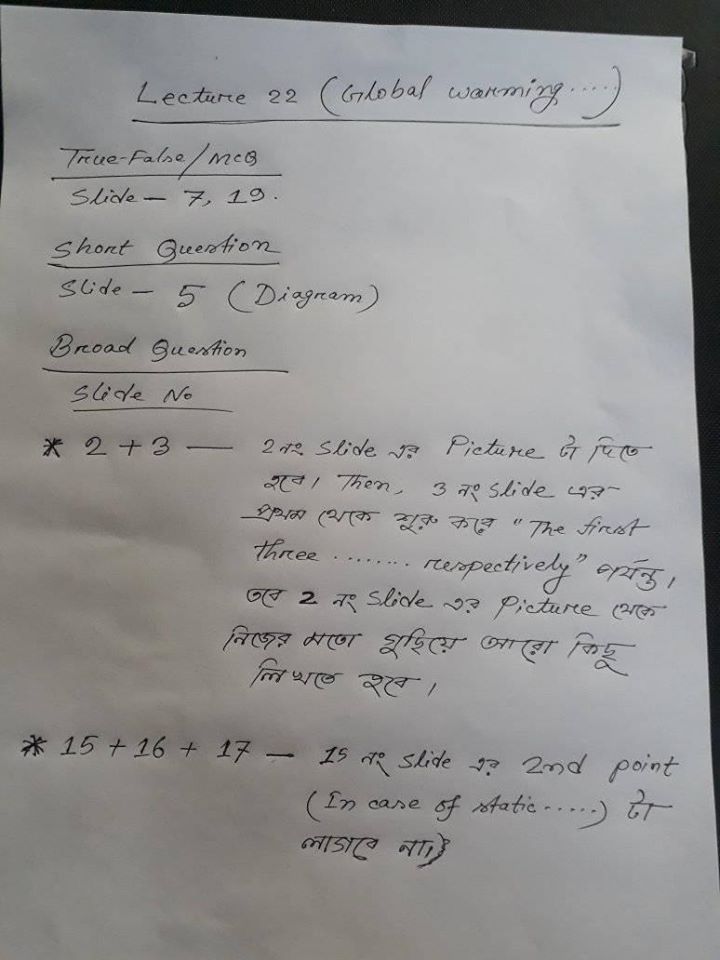 Lecture 22 (Global warming.....)
True-False/MCQ
Slide — 7, 19.
Short Question
Slide — 5 (Diagram)
Broad Question
Slide No
* 2 + 3 — 2 নং Slide এর Picture টা দিতে
হবে। Then, 3 নং Slide এর
প্রথম থেকে শুরু করে "The first
three ........ respectively" পর্যন্ত,
তবে 2 নং Slide এর Picture থেকে
নিজের মতো গুছিয়ে আরো কিছু
লিখতে হবে।
* 15 + 16 + 17 — 15 নং Slide এর 2nd point
(In case of static......) টা
লাগবে না।